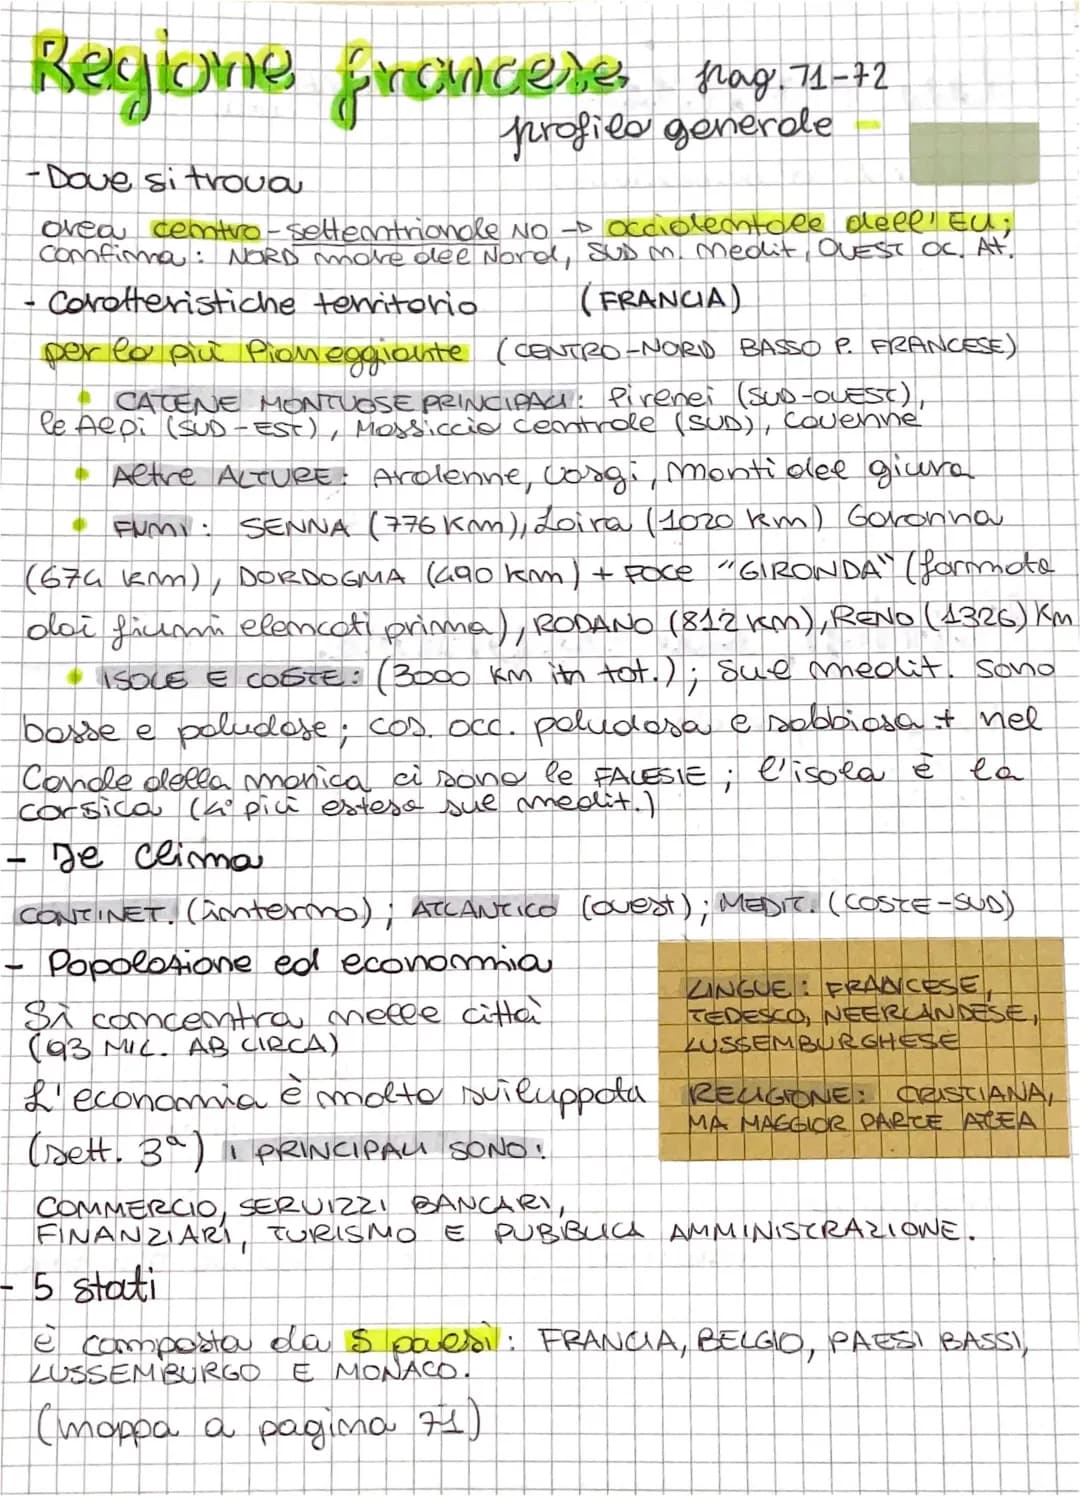 Regione francese pag. 71-72
profilo generale
- Dove si trova
area centro-settentrionale NO → occidentale dell'EU;
confina: NORD mare del Nord, SUD m. medit, OVEST OC. At.
- Caratteristiche territorio (FRANCIA)
per lo più Pianeggiante (CENTRO-NORD BASSO P. FRANCESE)
• CATENE MONTUOSE PRINCIPALI: Pirenei (SUD-OVEST),
le Alpi (SUD-EST), Massiccio centrale (SUD), Cavenne
• Altre ALTURE: Ardenne, Vosgi, Monti del giura
• FIUMI: SENNA (776 Km), Loira (1020 km) Garonna
(674 km), DORDOGMA (490 km) + FOCE "GIRONDA" (formata
dai fiumi elencati prima), RODANO (812 km), RENO (1326) Km
• ISOLE E COSTE: (3000 km in tot.); sul medit. sono
basse e paludose; cos. occ. paludosa e sabbiosa + nel
Canale della manica ci sono le FALESIE; l'isola è la
corsica (4° più estesa sul medit.)
- Il clima
CONTINET. (interno); ATLANTICO (ovest); MEDIT. (COSTE-SUD)
- Popolazione ed economia
Si concentra nelle città
(93 MIL. AB CIRCA)
L'economia è molto sviluppata
(sett. 3ª) I PRINCIPALI SONO:
COMMERCIO, SERVIZZI BANCARI,
FINANZIARI, TURISMO E PUBBLICA AMMINISTRAZIONE.
LINGUE: FRANCESE,
TEDESCO, NEERLANDESE,
LUSSEMBURGHESE
RELIGIONE: CRISTIANA,
MA MAGGIOR PARTE ATEA
- 5 stati
è composta da 5 paesi: FRANCIA, BELGIO, PAESI BASSI,
LUSSEMBURGO E MONACO.
(mappa a pagina 71)